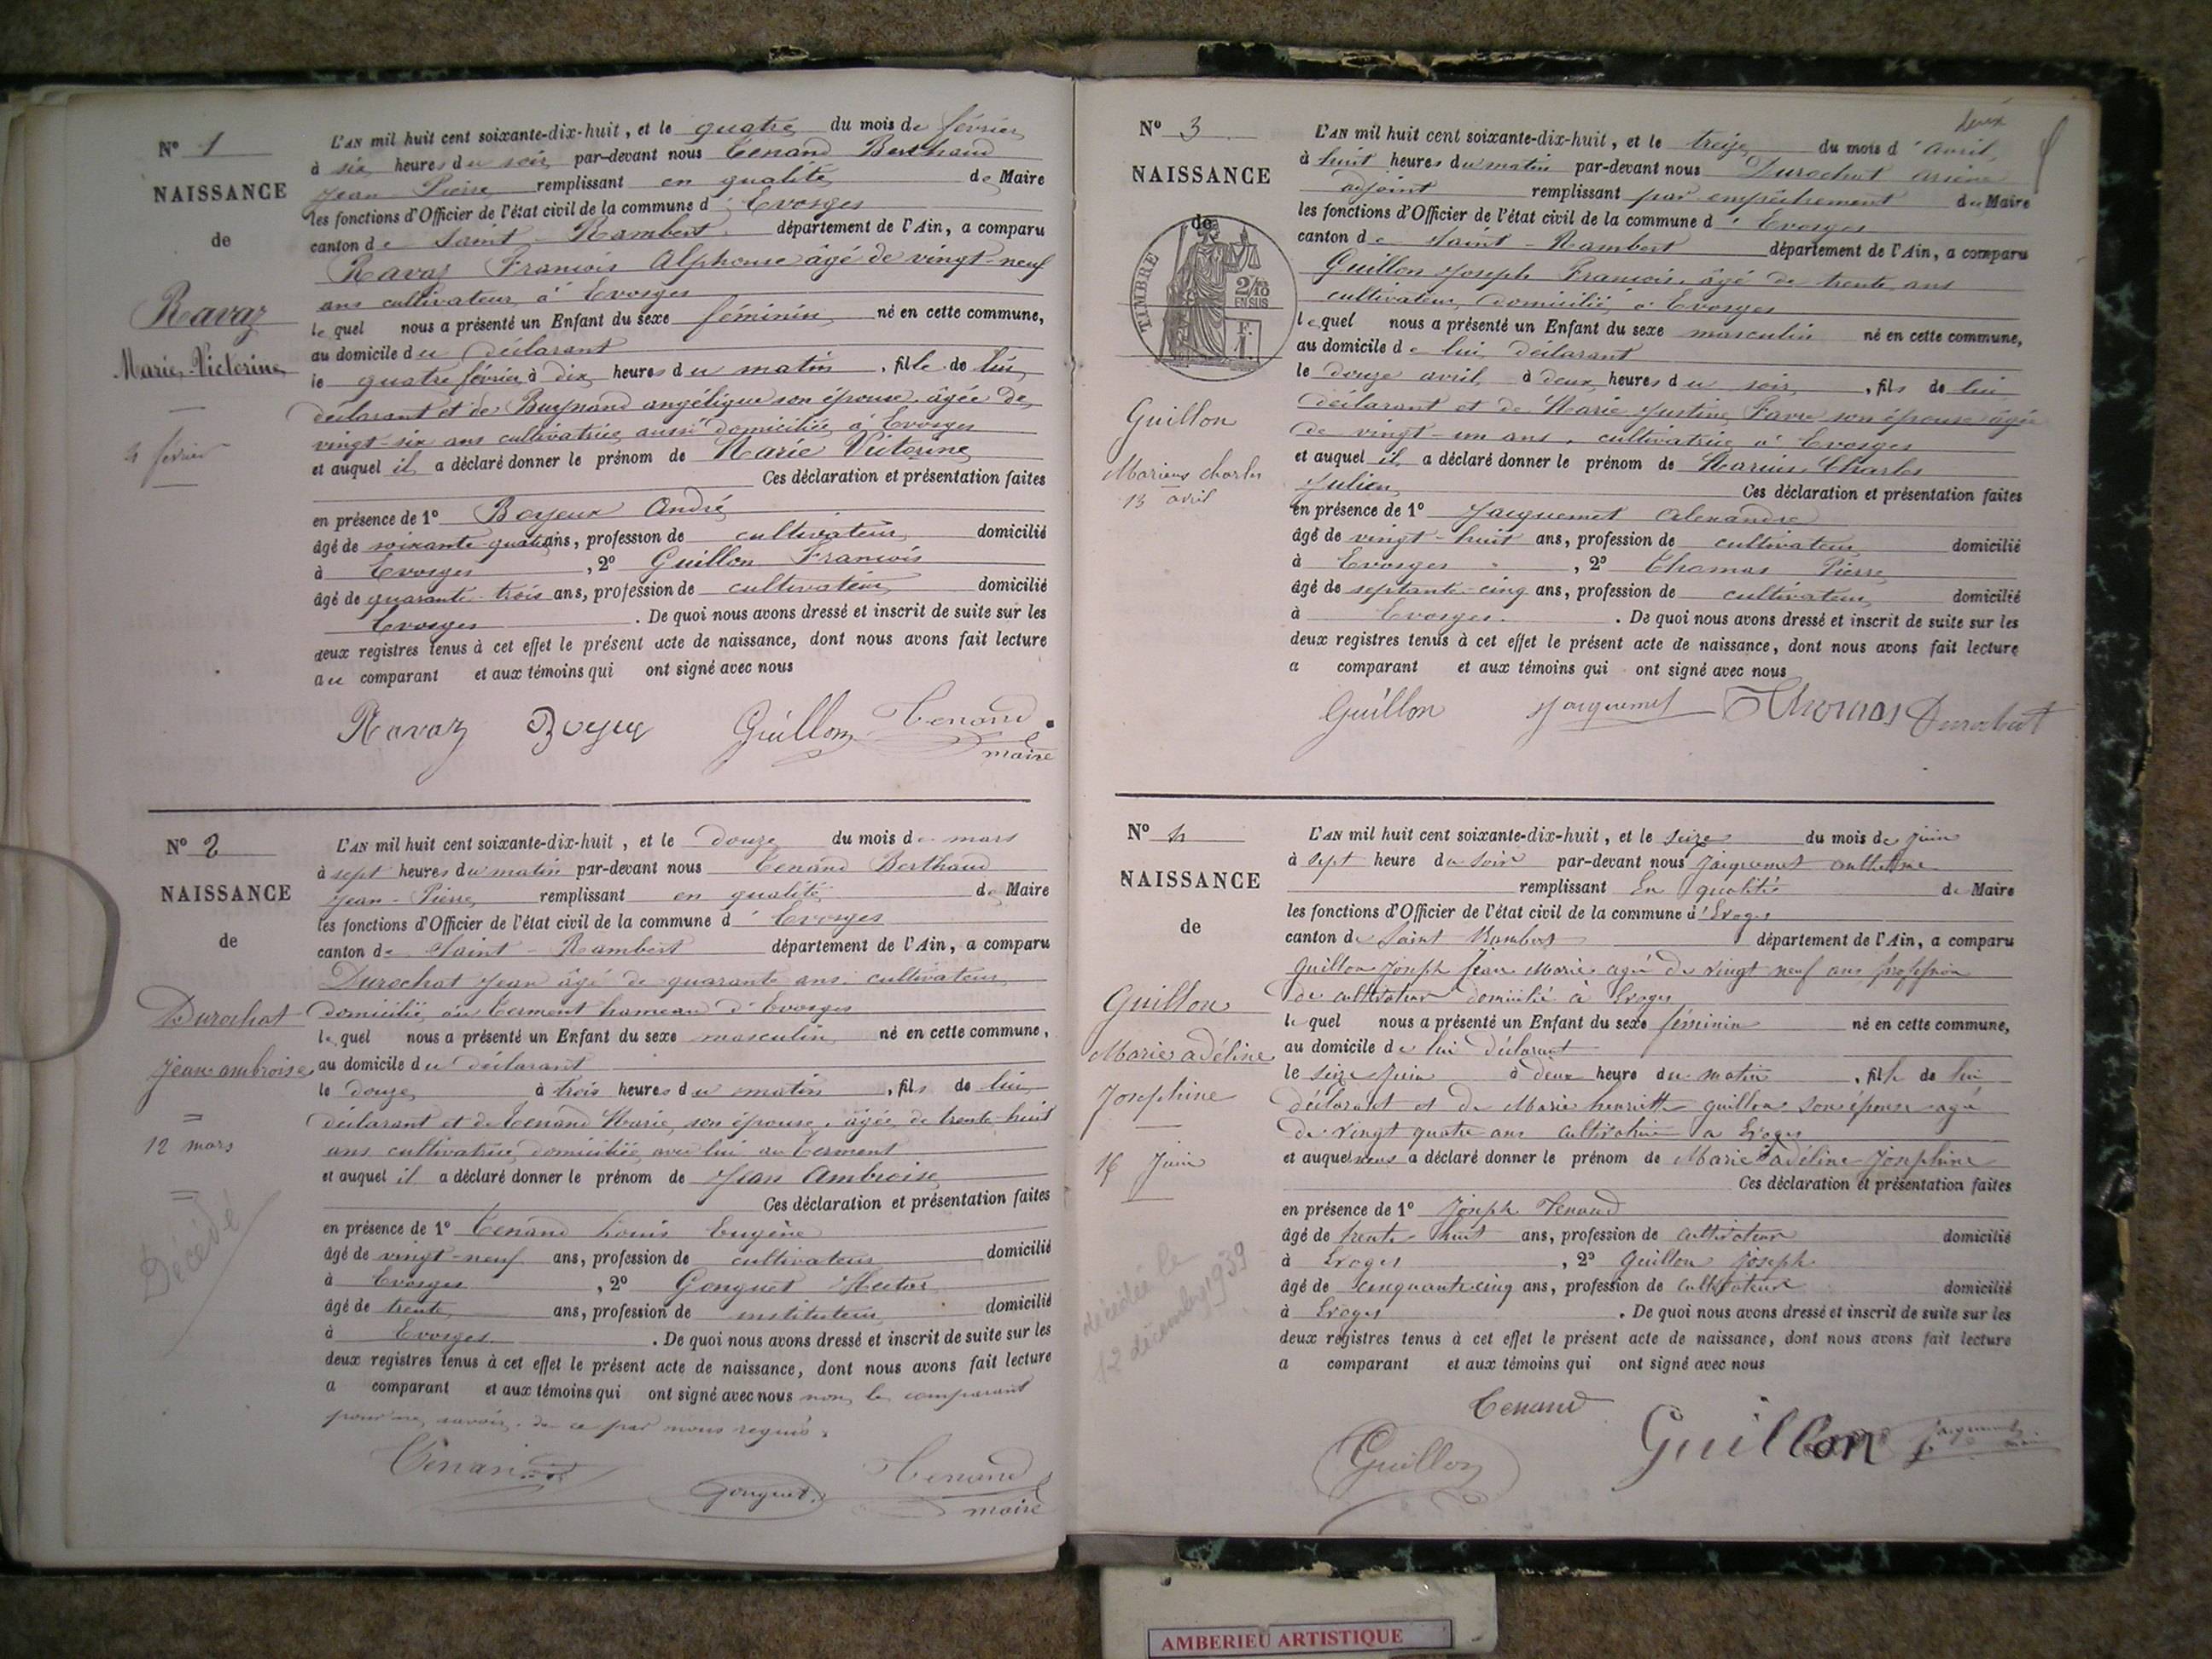 N° 1
NAISSANCE
de
Ravaz
Marie Victorine
4 février
L'AN mil huit cent soixante-dix-huit, et le quatre du mois de février
à six heures du soir par-devant nous Tenand Berthaud
Jean-Pierre remplissant en qualité de Maire
les fonctions d'Officier de l'état civil de la commune d'Evosges
canton de Saint-Rambert département de l'Ain, a comparu
Ravaz François Alphonse âgé de vingt-neuf
ans cultivateur à Evosges
lequel nous a présenté un Enfant du sexe féminin né en cette commune,
au domicile du déclarant
le quatre février à dix heures du matin, fille de lui
déclarant et de angélique son épouse âgée de
vingt-six ans cultivatrice aussi domiciliée à Evosges
et auquel il a déclaré donner le prénom de Marie Victorine
Ces déclaration et présentation faites
en présence de 1° Boyeux André
âgé de soixante-quatre ans, profession de cultivateur domicilié
à Evosges, 2° Guillon François
âgé de quarante-trois ans, profession de cultivateur domicilié
Evosges. De quoi nous avons dressé et inscrit de suite sur les
deux registres tenus à cet effet le présent acte de naissance, dont nous avons fait lecture
au comparant et aux témoins qui ont signé avec nous
Ravaz Guillon Tenand
maire
N° 2
NAISSANCE
de
Durochat
Jean ambroise
12 mars
Décédé
L'AN mil huit cent soixante-dix-huit, et le douze du mois de mars
à sept heures du matin par-devant nous Tenand Berthaud
Jean-Pierre remplissant en qualité de Maire
les fonctions d'Officier de l'état civil de la commune d'Evosges
canton de Saint-Rambert département de l'Ain, a comparu
Durochat Jean âgé de quarante ans cultivateur
domicilié au Terment hameau d'Evosges
lequel nous a présenté un Enfant du sexe masculin né en cette commune,
au domicile du déclarant
le douze à trois heures du matin, fils de lui
déclarant et de Tenand Marie son épouse, âgée de trente huit
ans cultivatrice domiciliée avec lui au Terment
et auquel il a déclaré donner le prénom de Jean Ambroise
Ces déclaration et présentation faites
en présence de 1° Tenand Louis Eugène
âgé de vingt-neuf ans, profession de cultivateur domicilié
à Evosges, 2° Gonguet Hector
âgé de trente ans, profession de instituteur domicilié
à Evosges. De quoi nous avons dressé et inscrit de suite sur les
deux registres tenus à cet effet le présent acte de naissance, dont nous avons fait lecture
a comparant et aux témoins qui ont signé avec nous non le comparant
pour ne savoir. de ce par nous requis.
Tenand Gonguet Tenand
maire
deux
N° 3
NAISSANCE
de
TIMBRE
2/10
EN SUS
Guillon
Marius Charles
13 avril
L'AN mil huit cent soixante-dix-huit, et le treize du mois d'avril
à huit heures du matin par-devant nous Durochat
adjoint remplissant par empêchement du Maire
les fonctions d'Officier de l'état civil de la commune d'Evosges
canton de Saint-Rambert département de l'Ain, a comparu
Guillon Joseph François âgé de trente ans
cultivateur domicilié à Evosges
lequel nous a présenté un Enfant du sexe masculin né en cette commune,
au domicile de lui déclarant
le douze avril à deux heures du soir, fils de lui
déclarant et de Marie Justine Favre son épouse âgée
de vingt-un ans, cultivatrice à Evosges
et auquel il a déclaré donner le prénom de Marius Charles
Julien Ces déclaration et présentation faites
en présence de 1° Jacquemet Alexandre
âgé de vingt-huit ans, profession de cultivateur domicilié
à Evosges, 2° Thomas Pierre
âgé de septante-cinq ans, profession de cultivateur domicilié
à Evosges. De quoi nous avons dressé et inscrit de suite sur les
deux registres tenus à cet effet le présent acte de naissance, dont nous avons fait lecture
a comparant et aux témoins qui ont signé avec nous
Guillon Jacquemet Thomas Durochat
N° 4
NAISSANCE
de
Guillon
Marie adéline
Josephine
16 Juin
décédée le
12 décembre 1939
L'AN mil huit cent soixante-dix-huit, et le seize du mois de juin
à sept heure du soir par-devant nous Jacquemet anthelme
remplissant En qualité de Maire
les fonctions d'Officier de l'état civil de la commune d'Evoges
canton de Saint Rambert département de l'Ain, a comparu
Guillon Joseph Jean Marie agé de vingt neuf ans profession
de cultivateur domicilié à Evoges
lequel nous a présenté un Enfant du sexe féminin né en cette commune,
au domicile de lui déclarant
le seize Juin à deux heure du matin, fille de lui
déclarant et de Marie henriette guillon son épouse agé
de vingt quatre ans cultivatrice a Evoges
et auquel nous a déclaré donner le prénom de Marie adéline Josephine
Ces déclaration et présentation faites
en présence de 1° Joseph Tenand
âgé de trente huit ans, profession de cultivateur domicilié
à Evoges, 2° Guillon Joseph
âgé de cinquante cinq ans, profession de cultivateur domicilié
à Evoges. De quoi nous avons dressé et inscrit de suite sur les
deux registres tenus à cet effet le présent acte de naissance, dont nous avons fait lecture
a comparant et aux témoins qui ont signé avec nous
Tenand
Guillon Guillon Jacquemet
AMBERIEU ARTISTIQUE